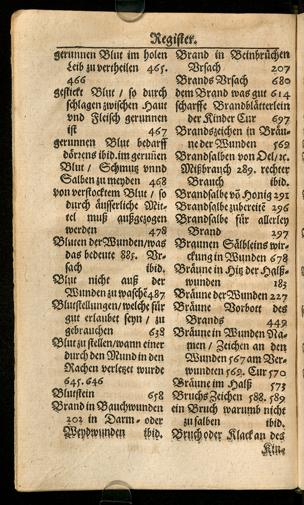 Register.
gerunnen Blut im holen
Leib zu vertheilen 465.
466
gestickt Blut / so durch
schlagen zwischen Haut
vnd Fleisch gerunnen
ist 467
gerunnen Blut bedarff
dörrens ibid. im gerunnen
Blut / Schmutz vnnd
Salben zu meyden 468
von verstocktem Blut / so
durch äusserliche Mit-
tel muß außgezogen
werden 478
Bluten der Wunden / was
das bedeute 885. Vr-
sach ibid.
Blut nicht auß der
Wunden zu waschē 487
Blutstellungen / welche für
gut erlaubet seyn / zu
gebrauchen 638
Blut zu stellen / wann einer
durch den Mund in den
Rachen verletzt wurde
645. 646
Blutstein 658
Brand in Bauchwunden
202 in Darm- oder
Weydwunden ibid.
Brand in Beinbrüchen
Vrsach 207
Brands Vrsach 680
dem Brand was gut 614
scharffe Brandblätterlein
der Kinder Cur 697
Brandszeichen in Bräu-
ne der Wunden 569
Brandsalben von Oel / ꝛc.
Mißbrauch 289. rechter
Brauch ibid.
Brandsalbe vō Honig 291
Brandsalbe zubereite 296
Brandsalbe für allerley
Brand 297
Braunen Sälbleins wir-
ckung in Wunden 678
Bräune in Hitz der Halß-
wunden 183
Bräune der Wunden 227
Bräune Vorbott des
Brands 449
Bräune in Wunden Na-
men / Zeichen an den
Wunden 567 am Ver-
wundten 569. Cur 570
Bräune im Halß 573
Bruchs Zeichen 588. 589
ein Bruch warumb nicht
zu salben ibid.
Bruch oder Klack an des
Kin-